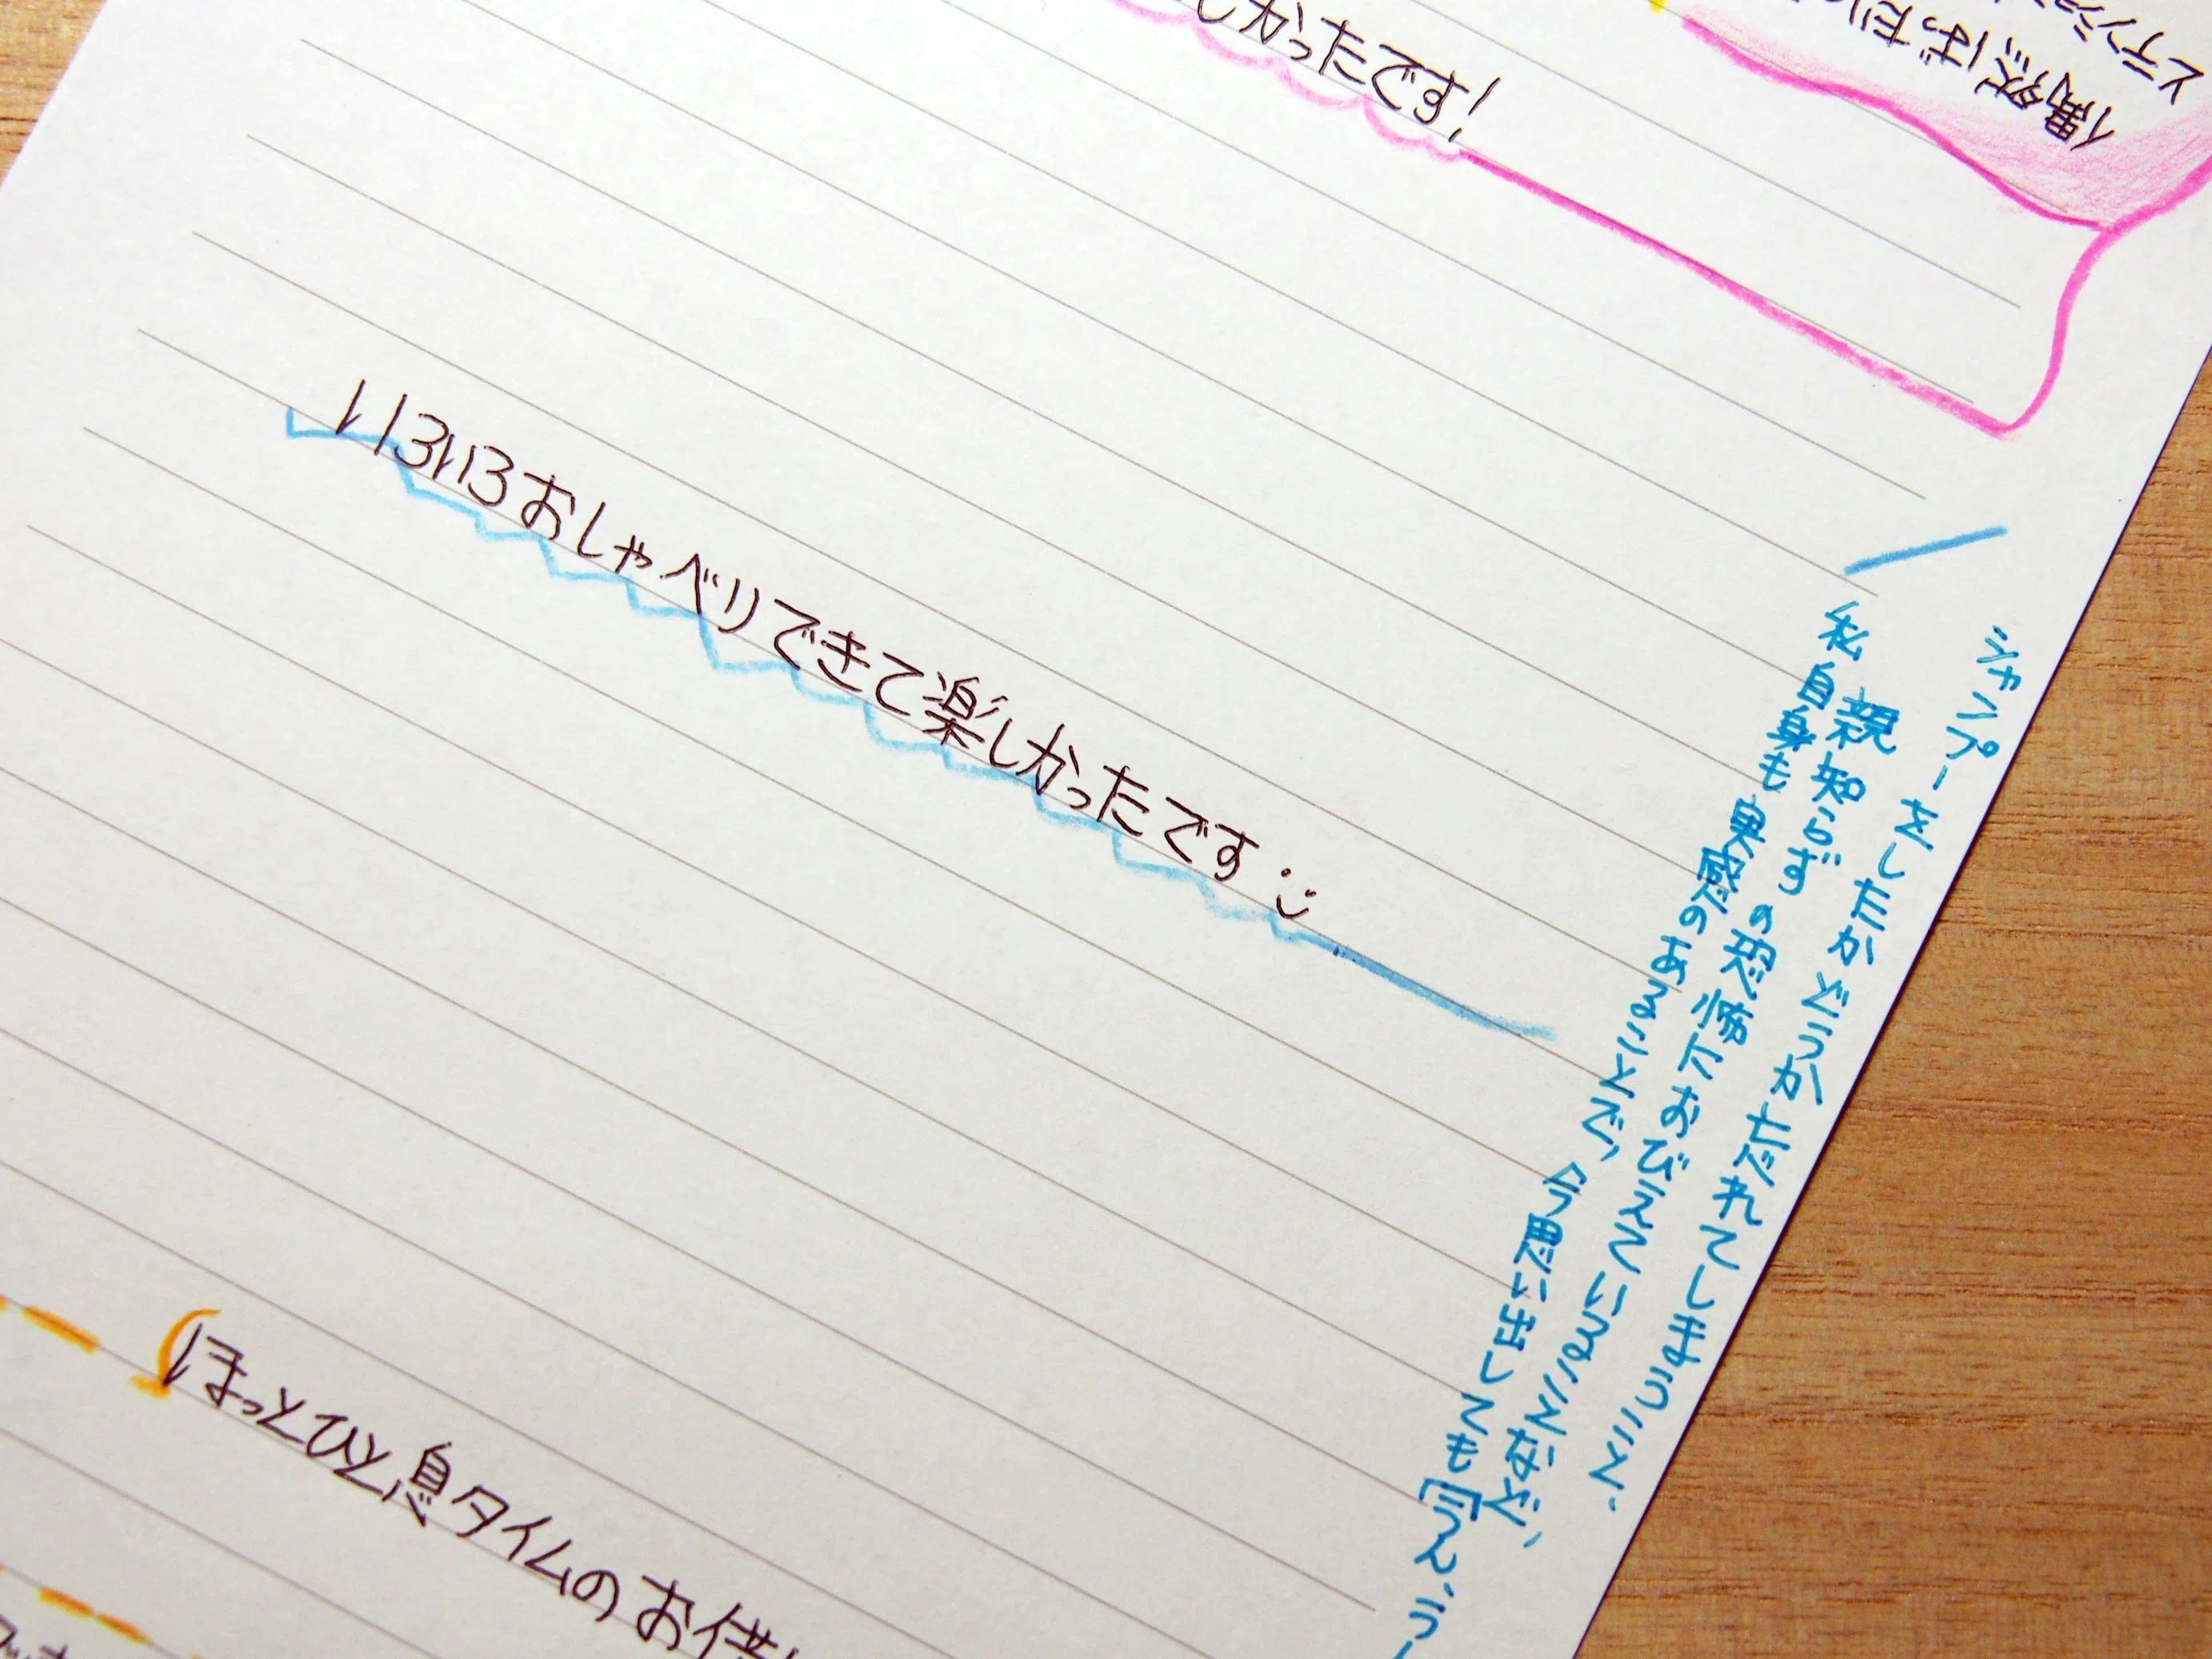 偶然ばったり
とテンション
しかったです!
いろいろおしゃべりできて楽しかったです
シャンプーをしたかどうか忘れてしまうこと、
親知らずの恐怖におびえていることなど、
私自身も実感のあることで、今思い出しても「うん、うー
ほっとひと息タイムのお供